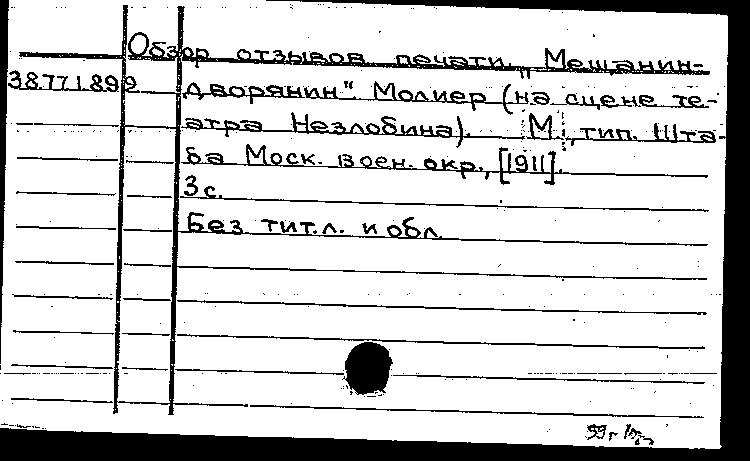 Обзор отзывов печати. „Мещанин-
38771899 дворянин". Молиер (на сцене те-
атра Незлобина). М., тип. Шта-
ба Моск. воен. окр., [1911].
3 с.
Без тит. л. и обл.